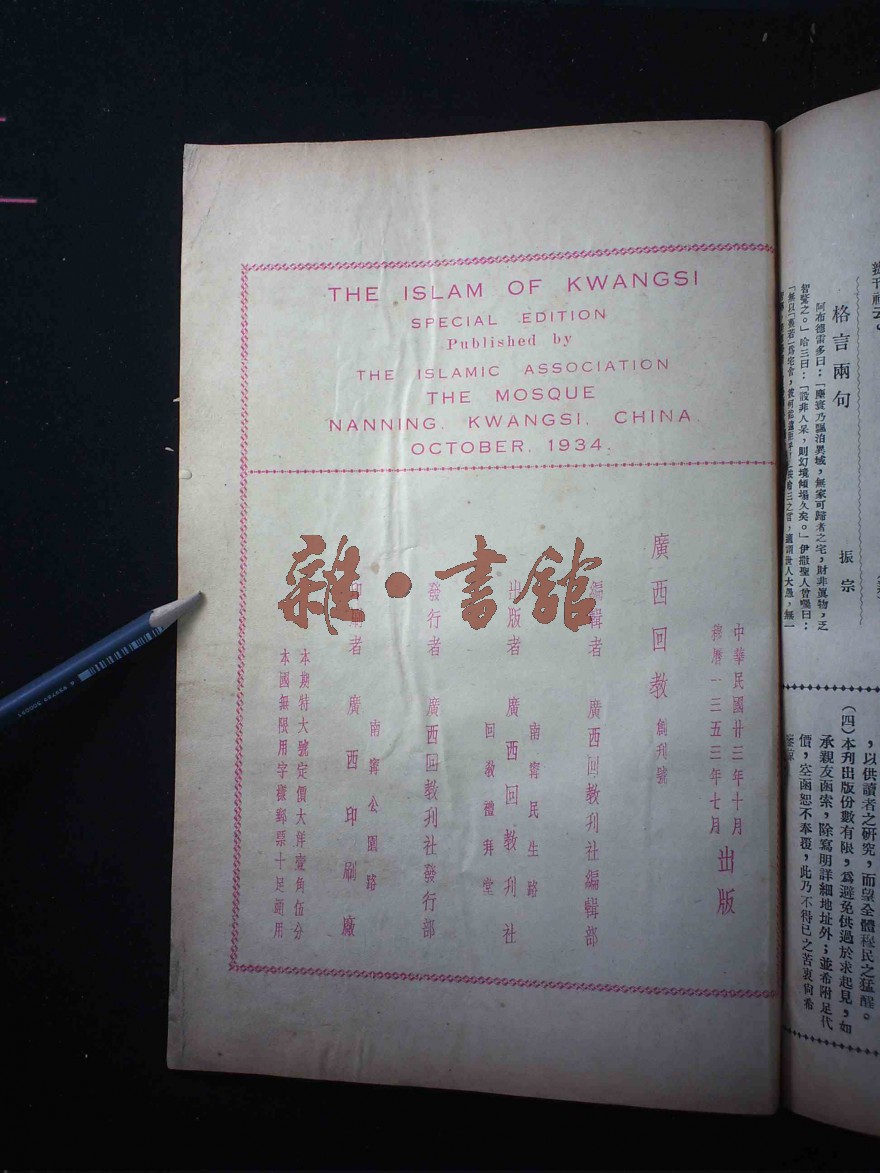 THE ISLAM OF KWANGSI
SPECIAL EDITION
Published by
THE ISLAMIC ASSOCIATION
THE MOSQUE
NANNING, KWANGSI, CHINA.
OCTOBER, 1934.
中華民國廿三年十月
穆曆一三五三年七月
出版
廣西回教 創刊號
編輯者 廣西回教刊社編輯部
南寧民生路
出版者 廣西回教刊社
回教禮拜堂
發行者 廣西回教刊社發行部
南寧公園路
印刷者 廣西印刷廠
本期特大號定價大洋壹角伍分
本國無限用字樣郵票十足通用
雜·書館
格言兩句
振宗
阿布德雷多曰：「塵寰乃飄泊異域，無家可歸者之宅，財非眞物，乏
智鶩之。」哈三曰：「設非人呆，則幻境傾塌久矣。」伊撒聖人曾喝曰：
，以供讀者之硏究，而望全體穆民之猛醒。
（四）本刊出版份數有限，爲避免供過於求起見，如
承親友函索，除寫明詳細地址外；並希附足代
價，空函恕不奉覆，此乃不得已之苦衷尙希